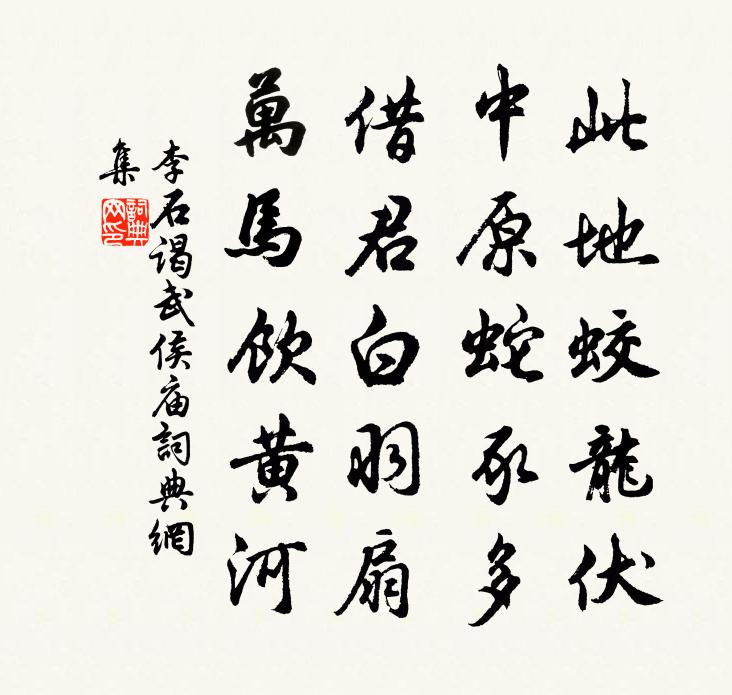 此地蛟龍伏
中原蛇豕多
借君白羽扇
萬馬飲黄河
李石謁武侯庙詞典網
集
詞典
网印